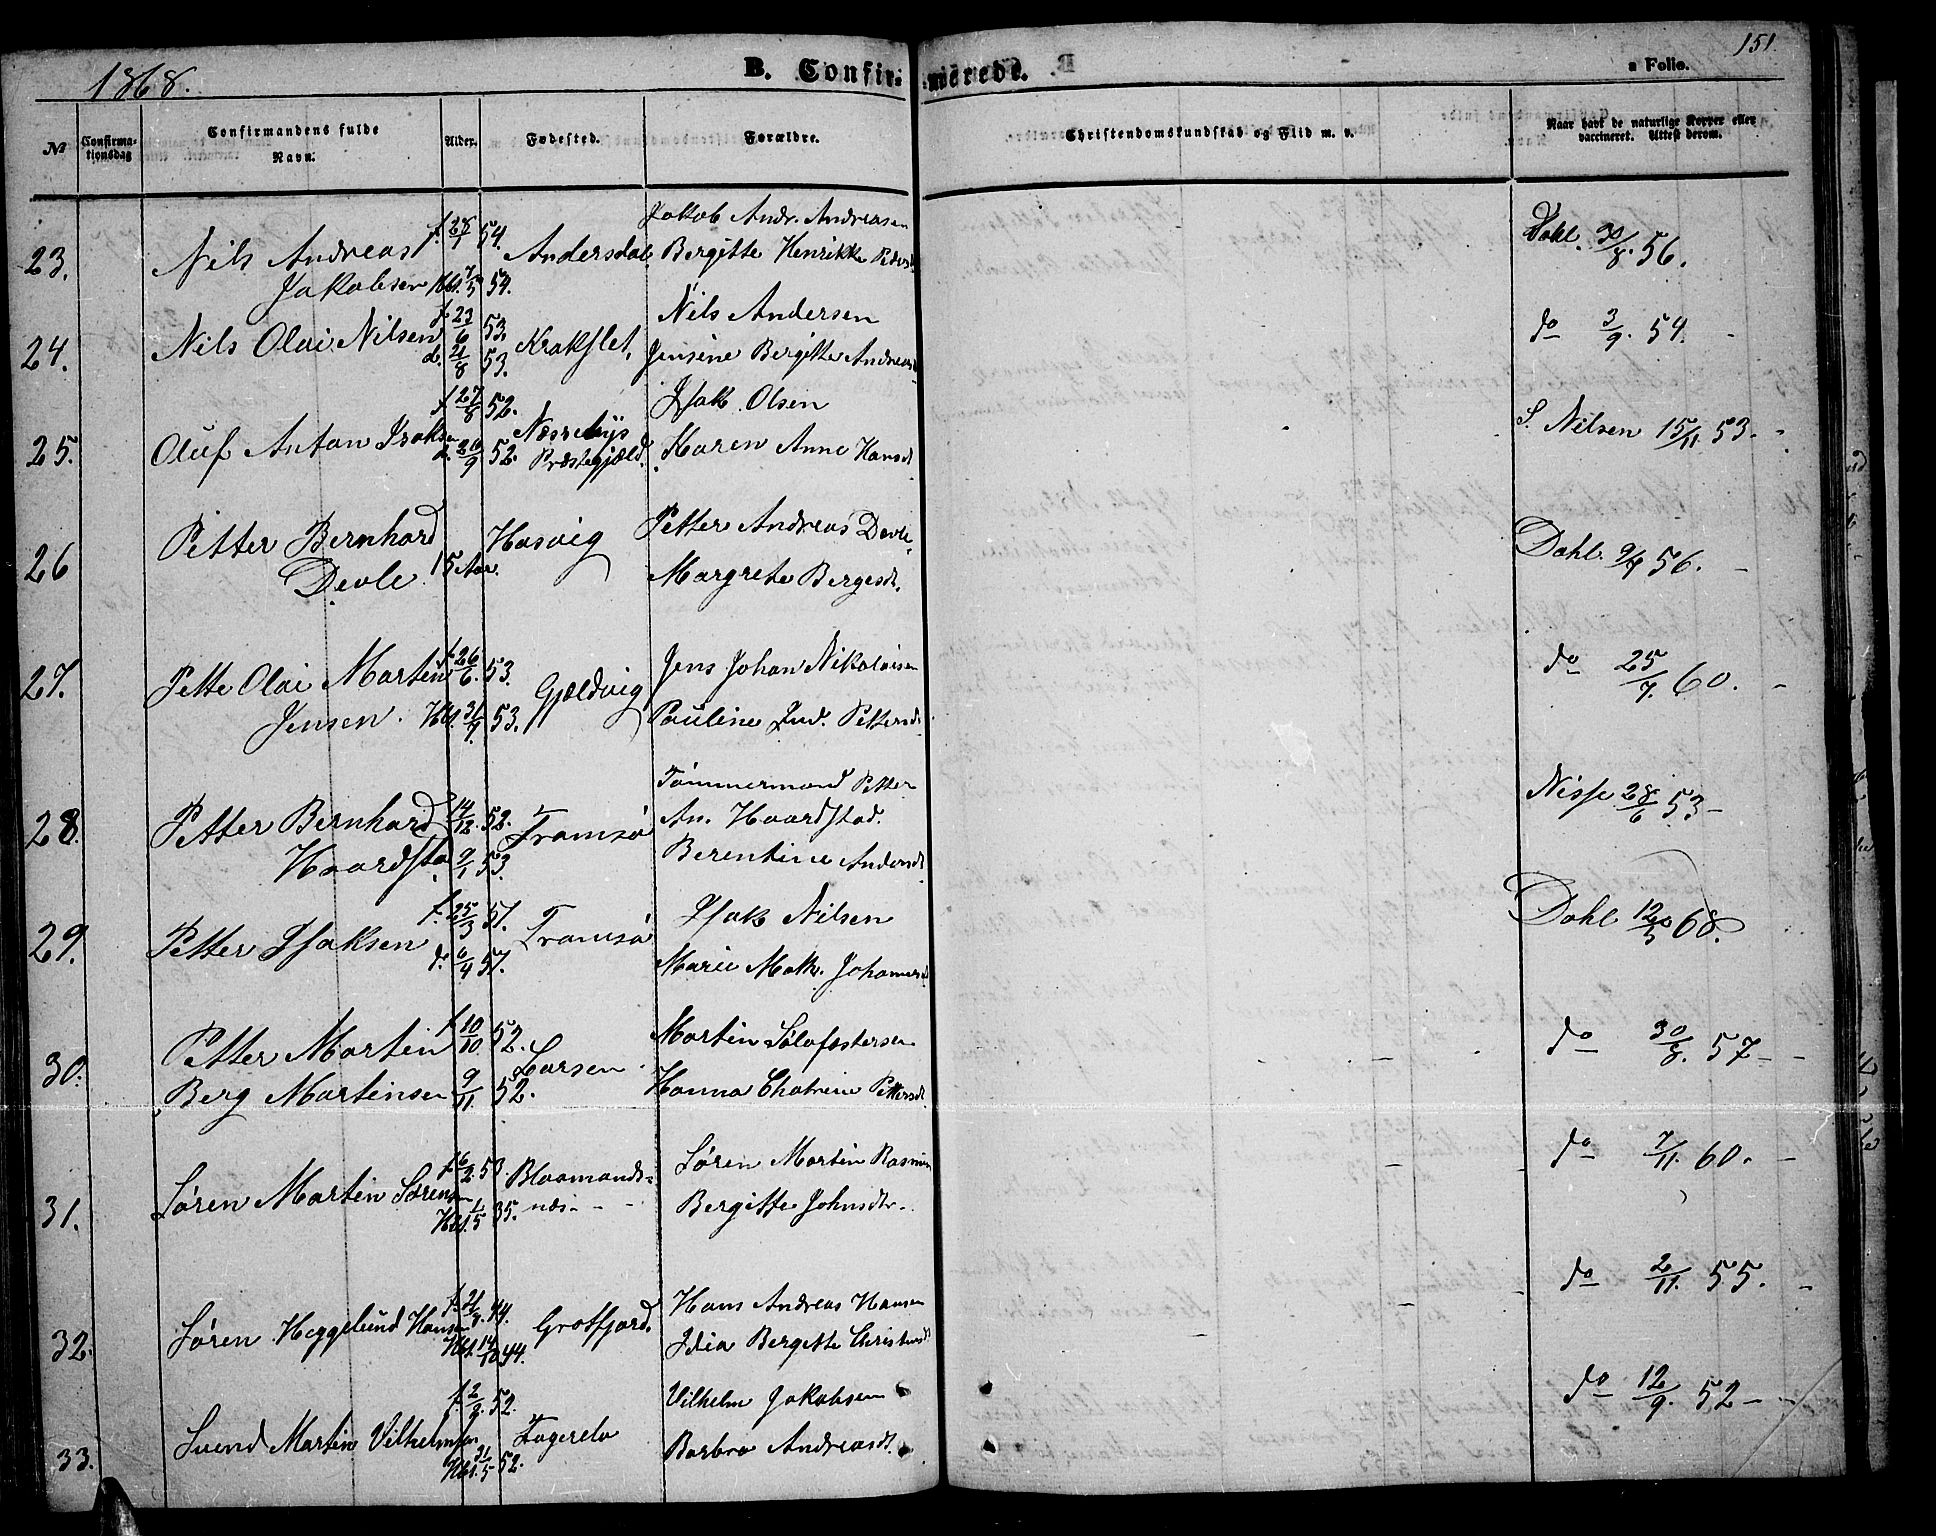 151.
1868.
B. Confirmerede.
a Folio.
№
Confirma-
tionsdag
Confirmandens fulde
Navn.
Alder.
Fødested.
Forældre.
Christendomskundskab og Flid m. v.
Naar havt de naturlige Kopper eller
vaccineret. Attest derom.
23. Nils Andreas Jakobsen f. 28/1 54. Hbt. 7/5 54. Andersdal Jakob Andr. Andreasen Bergitte Henrikke Pedersd. Dahl. 30/8. 56.
24. Nils Olai Nilsen f. 23/6 53. d. 21/8 53. Krakslet, Nils Andersen Jensine Bergitte Andreasd. do 3/9. 54.
25. Oluf Anton Isaksen f. 27/8 52. d. 26/9 52. Næssebys Præstegjæld. Isak Olsen Karen Anne Hansd. S. Nilsen 15/11 53.
26 Petter Bernhard Devle 15 Aar. Hasvig Petter Andreas Devle Margrete Bergesd. Dahl. 9/7 56.
27. Pette Olai Martin Jensen. f. 26/6. 53. Hbt. 31/7 53. Gjeldvig Jens Johan Nikolaisen Pauline Ind. Pettersd. do 25/7. 60.
28. Petter Bernhard Haardsta. 14/12. 52. 9/1 53. Tromsø Tømmermand Petter An. Haardstad. Berentine Andersd. Nisse 28/6 53
29. Petter Isaksen f. 25/3 51. d. 6/4 51. Tromsø Isak Nilsen Marie Math. Johannesd. Dahl 12/5 68.
30. Petter Martin Berg Martinsen f. 10/10. 52. 9/11 52. Larsen Martin Sølafestersen Hanna Chatrine Pettersd. do 30/8. 57
31. Søren Martin Sørensen f. 6/2. 53. Hbt. 1/5 35. Blaamandsnæs Søren Martin Rasmussen Bergitte Johnsdtr. do 7/11. 60.
32. Søren Heggelund Hansen f. 21/9. 44. Hbt. 14/10 44. Grotfjord. Hans Andreas Hansen Idia Bergitte Christensd. do 2/11. 55.
33. Svend Martin Vilhelmsen f. 2/2. 52. Hbt. 31/5 52. Fagerelv Vilhelm Jakobsen Barbra Andreasd. do 12/9. 52